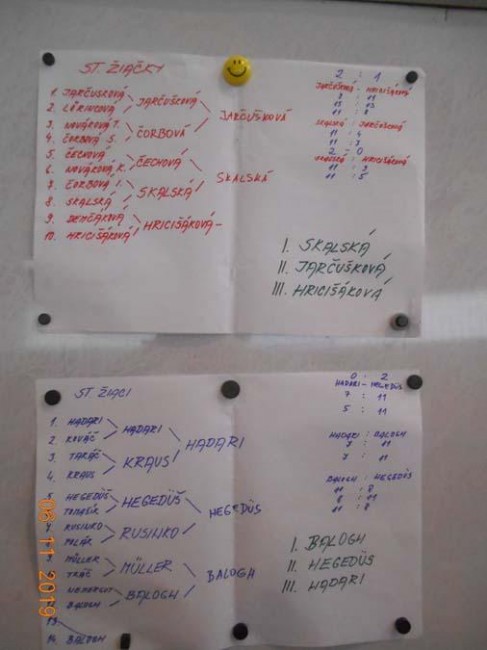 ST. ŽIAČKY
1. JARČUŠKOVÁ
2. LÖRINCOVÁ
JARČUŠKOVÁ
3. NOVÁKOVÁ T.
4. ČORBOVÁ S.
ČORBOVÁ
JARČUŠKOVÁ
5. ČECHOVÁ
6. NOVÁKOVÁ K.
ČECHOVÁ
ČORBOVÁ
8. SKALSKÁ
SKALSKÁ
SKALSKÁ
9. DEMČÁKOVÁ
10. HRICIŠÁKOVÁ
HRICIŠÁKOVÁ -
2 : 1
JARČUŠKOVÁ - HRICIŠÁKOVÁ
: 11
: 13
11 : 8
SKALSKÁ : JARČUŠKOVÁ
11 : 4
11 : 3
2 - 0
SKALSKÁ : HRICIŠÁKOVÁ
11 : 3
11 : 5
I. SKALSKÁ
II. JARČUŠKOVÁ
III. HRICIŠÁKOVÁ
ST. ŽIACI
1. HADARI
2. KOVÁČ
HADARI
3. TAKÁČ
4. KRAUS
KRAUS
HADARI
5 HEGEDÜŠ
TOMAŠIK
HEGEDÜŠ
RUSINKO
POLÁK
RUSINKO
HEGEDÜS
MÜLLER
TKÁČ
MÜLLER
BALOGH
BALOGH
BALOGH
13.
14. BALOGH
0 - 2
HADARI - HEGEDÜS
7 : 11
5 : 11
HADARI : BALOGH
7 : 11
7 : 11
BALOGH : HEGEDÜS
11 : 8
: 11
11 : 8
I. BALOGH
II. HEGEDÜS
III. HADARI
06 11 2019